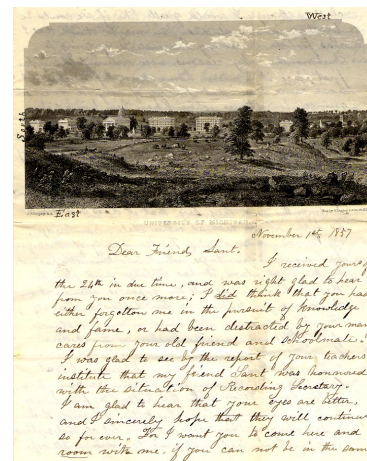 West
South
East
UNIVERSITY OF MICHIGAN
November 1st, 1857
Dear Friend, Sant.
I received yours of
the 24th in due time, and was right glad to hear
from you once more; I did think that you had
either forgotten me in the pursuit of knowledge
and fame, or had been distracted by your many
cares from your old friend and schoolmate.
I was glad to see by the report of your teachers
institute that my friend Sant was honnored
with the situation of Recording Secretary.
I am glad to hear that your eyes are better,
and I sincerely hope that they will continue
so for ever. For I want you to come here and
room with me. if you can not be in the same